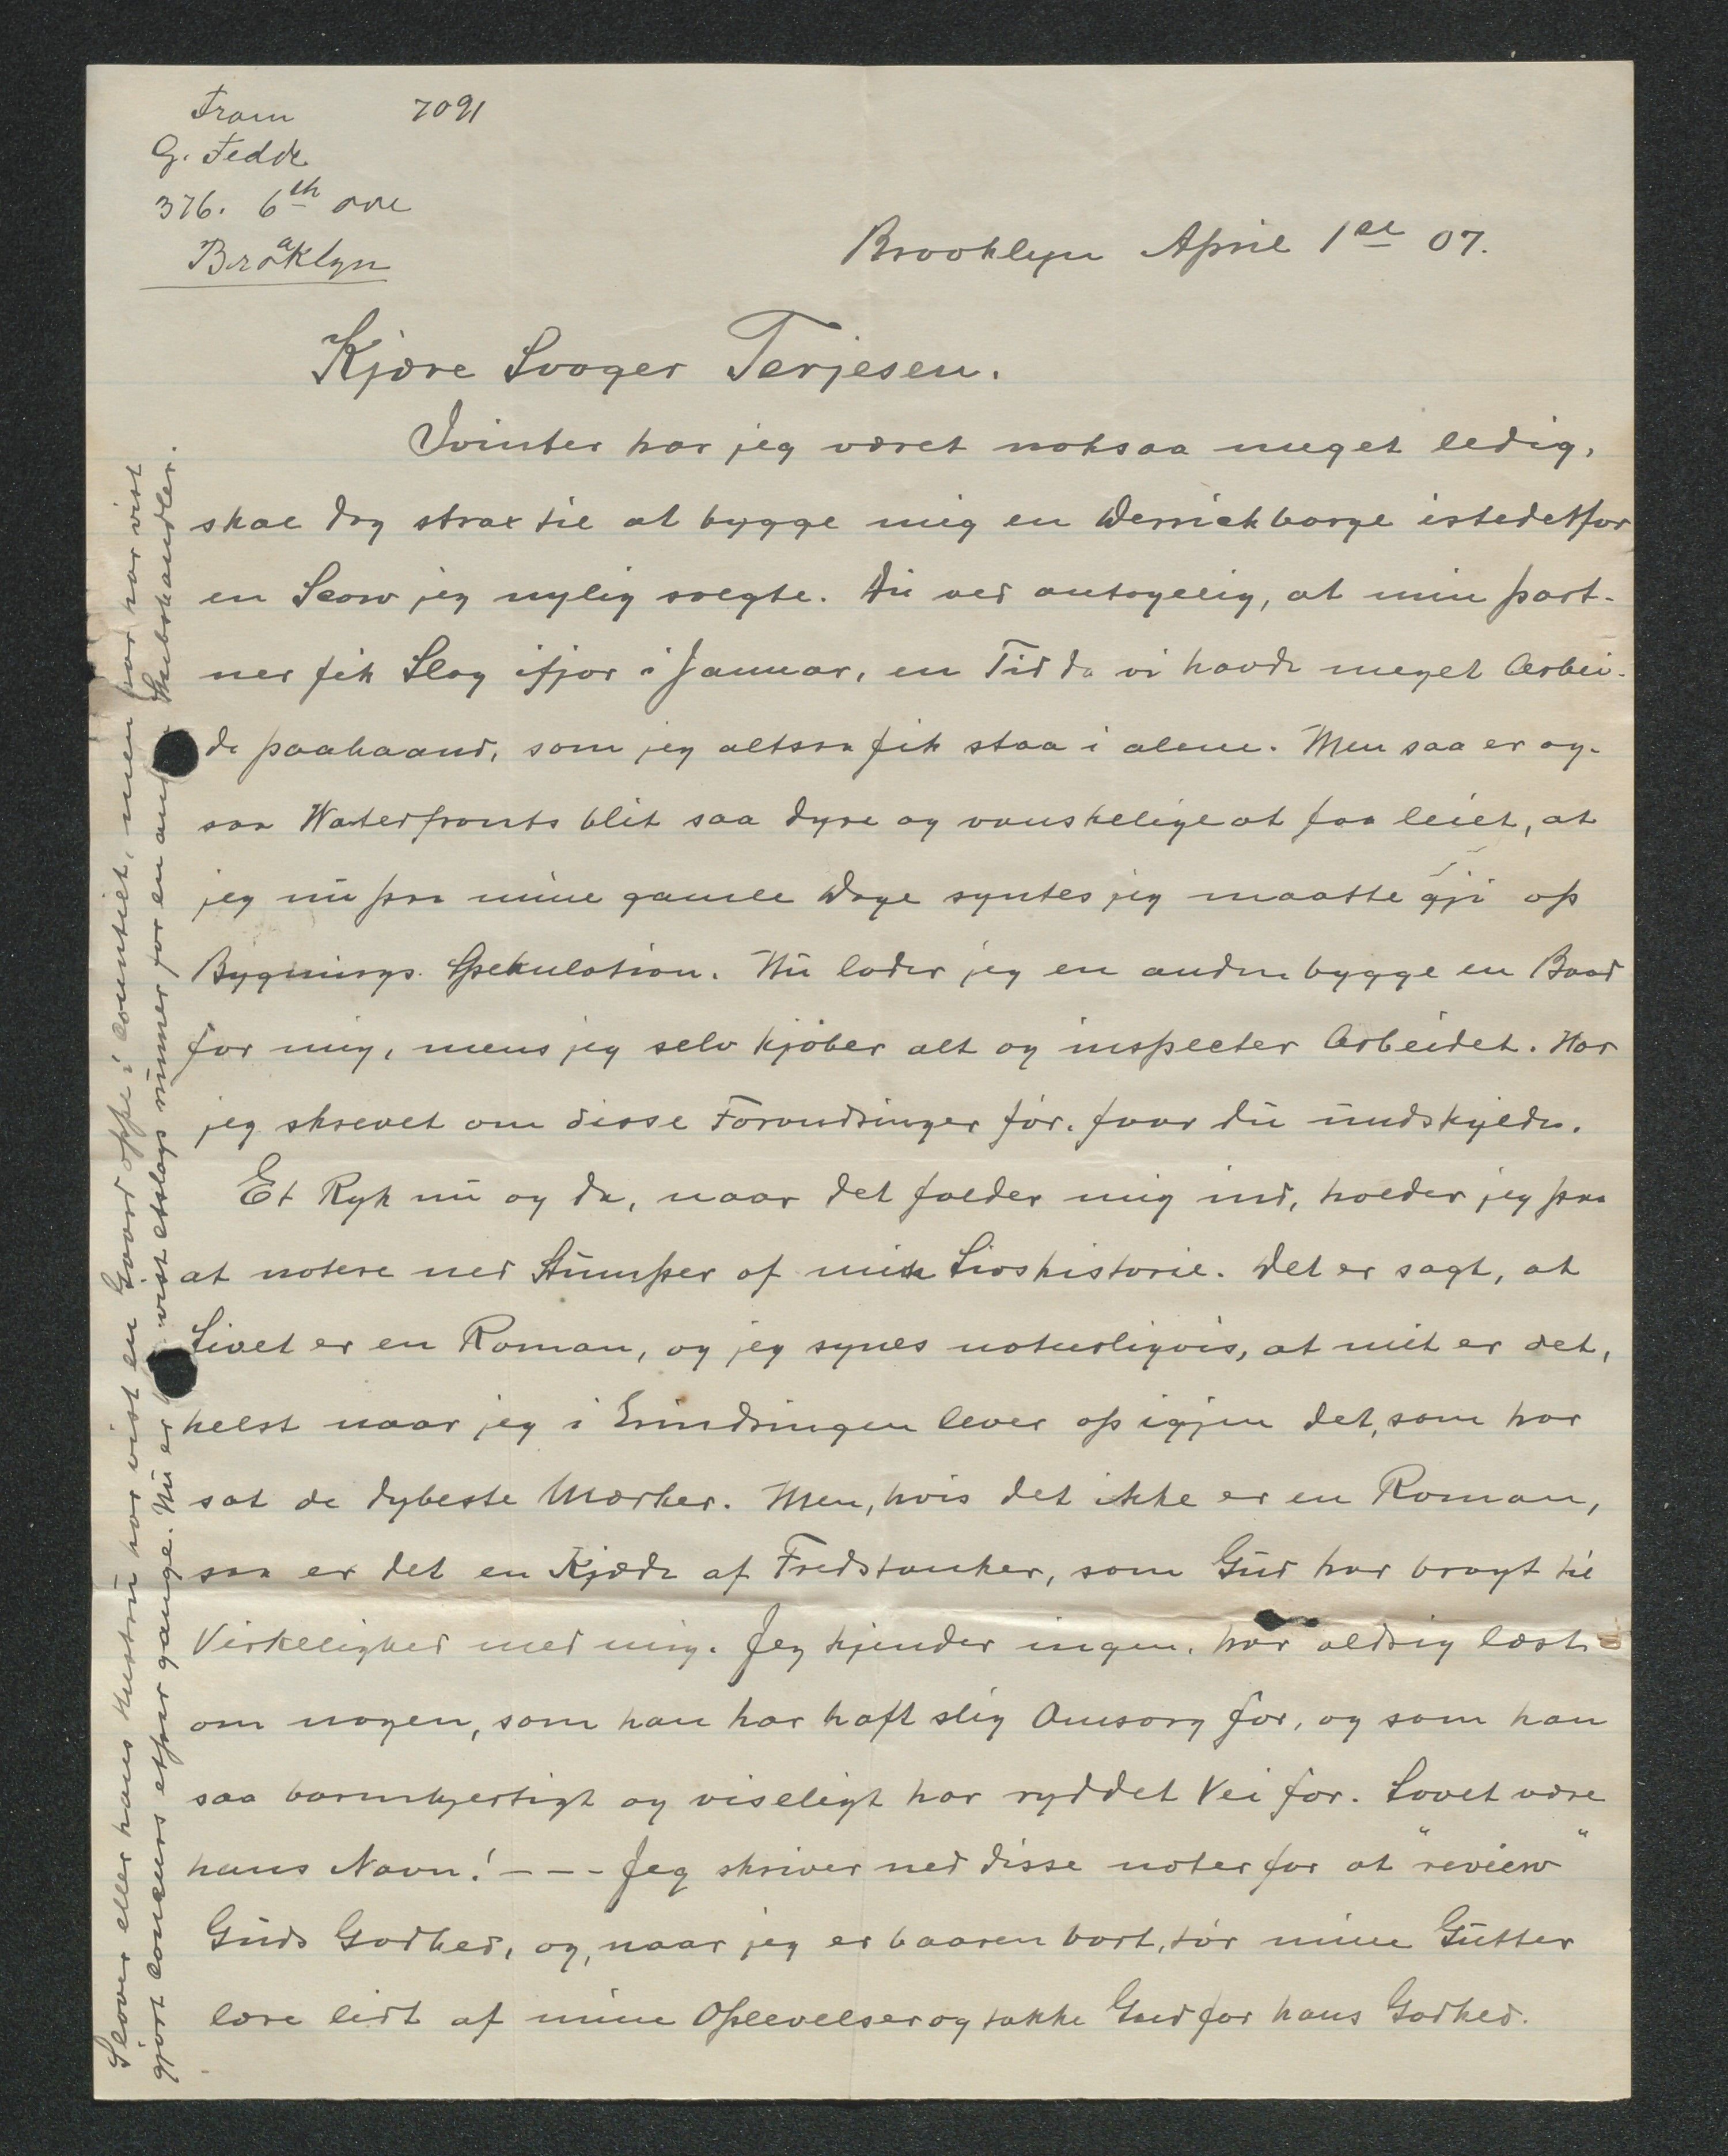 From 7091
G. Fedde
376. 6th ave
Broaklyn
Brooklyn April 1st 07.
Kjære Svoger Terjesen.
Ivinter har jeg været noksaa meget ledig,
skal dog strax til at bygge mig en Derrickbarge istedetfor
en Scow jeg nylig solgte. Du ved antagelig, at min part-
ner fik Slag ifjor i Januar, en Tid da vi havde meget Arbei-
de paahaand, som jeg altsaa fik staa i alene. Men saa er og-
saa Waterfronts blit saa dyre og vanskelige at faa leiet, at
jeg nu paa mine gamle Dage syntes jeg maatte gji op
Bygnings Spekulation. Nu lader jeg en anden bygge en Baad
for mig, mens jeg selv kjøber alt og inspecter Arbeidet. Har
jeg skrevet om disse Forandringer før, faar du undskylde.
Et Ryk nu og da, naar det falder mig ind, holder jeg paa
at notere ned Stumper af min Livshistorie. Det er sagt, at
Livet er en Roman, og jeg synes naturligvis, at mit er det,
helst naar jeg i Erindringen lever op igjen det, som har
sat de dybeste Mærker. Men, hvis det ikke er en Roman,
saa er det en Kjæde af Fredstanker, som Gud har bragt til
Virkelighed med mig. Jeg kjender ingen, har aldrig læst
om nogen, som han har haft slig Omsorg for, og som han
saa barmhjertigt og viseligt har ryddet Vei for. Lovet være
hans Navn! - - - Jeg skriver ned disse noter for at "review"
Guds Godhed, og, naar jeg er baaren bort, tør mine Gutter
lære lidt af mine Oplevelser og takke Gud for hans Godhed.
Slover eller hans Hustru har vist en Gaard oppe i Countiet, men han har vist
gjort Concurs etpar gange. Nu er vist etslags runner for en Skibshandler.